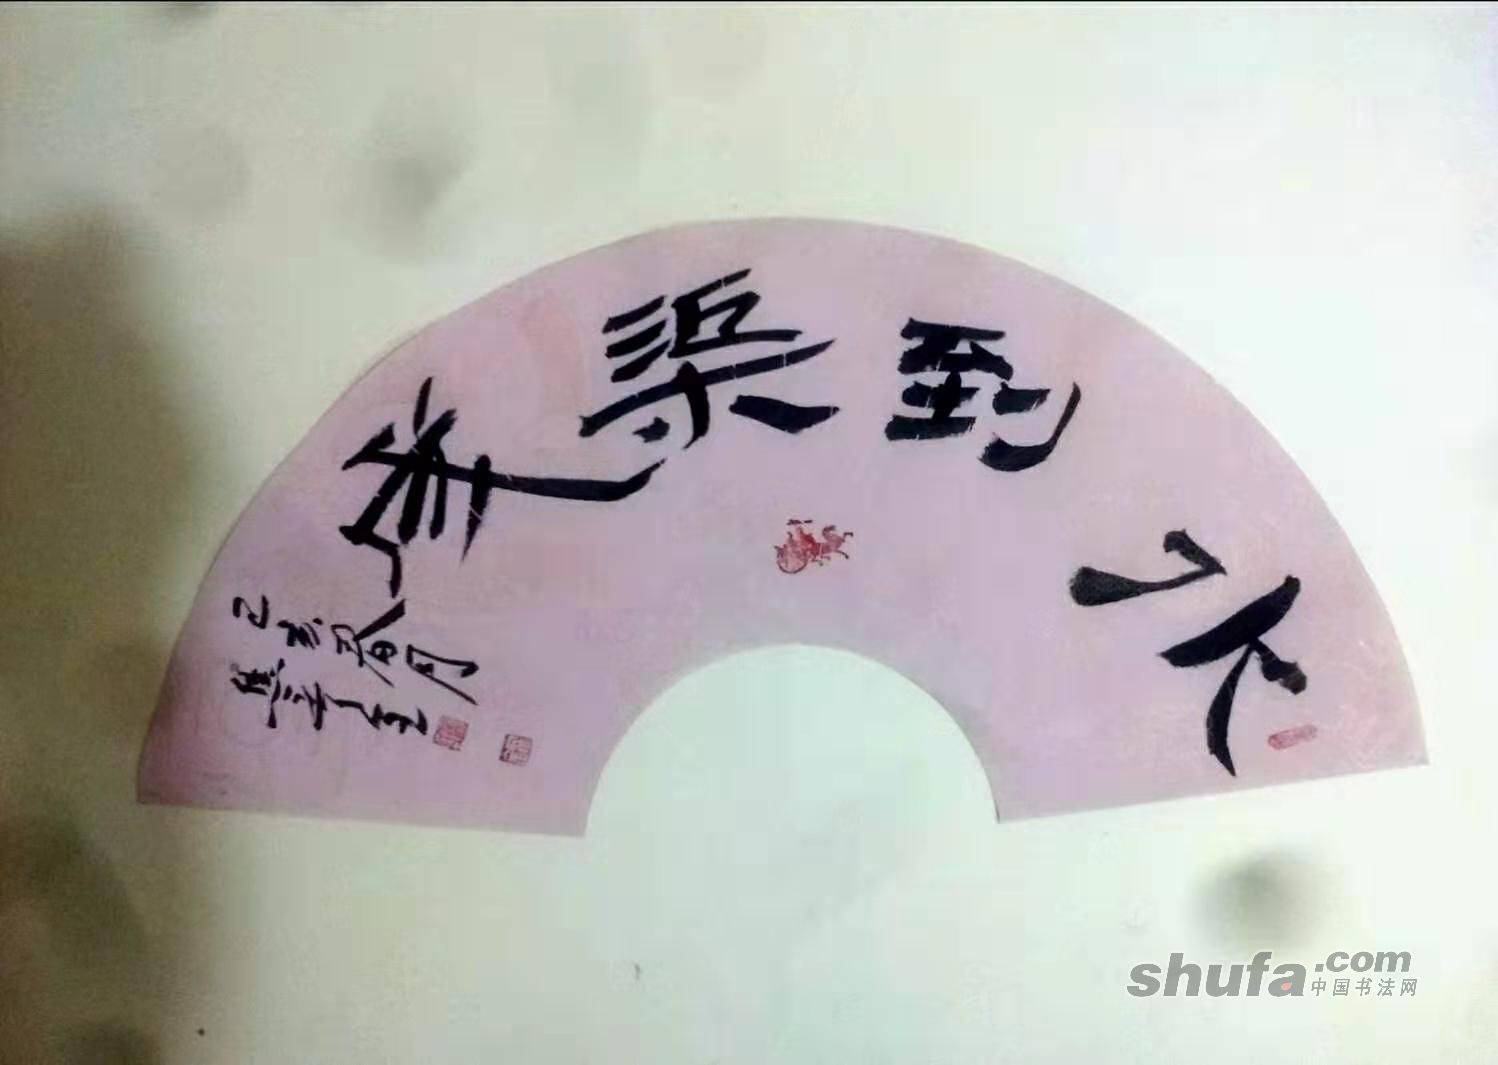 水到渠成
己亥 月
shufa.com
中国书法网